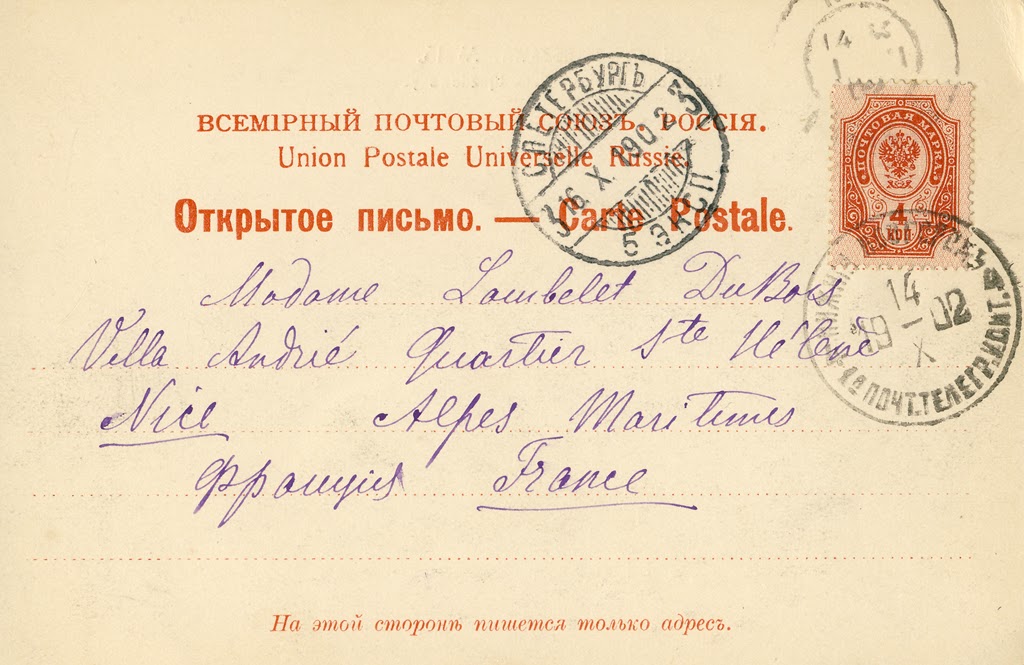 ВСЕМІРНЫЙ ПОЧТОВЫЙ СОЮЗЪ. РОССІЯ.
Union Postale Universelle Russie.
Открытое письмо. — Carte Postale.
С.ПЕТЕРБУРГЪ
16 X. 1902
5 ЭКСП.
14
ПОЧТОВАЯ МАРКА
4
КОП.
14
X
02
ПОЧТ.ТЕЛЕГР.
Madame Lambelet DuBois
Villa André Quartier Ste Hélène
Nice Alpes Maritimes
Франція France
На этой сторонѣ пишется только адресъ.